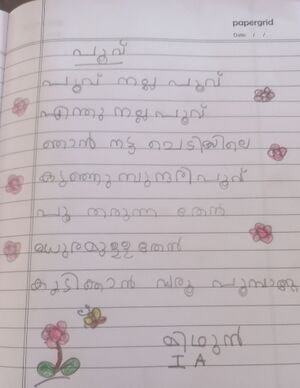 papergrid
Date: / /
പൂവ്
പൂവ് നല്ല പൂവ്
എന്തു നല്ല പൂവ്
ഞാൻ നട്ട ചെടിയിലെ
കുഞ്ഞു സുന്ദരി പൂവ്
പൂ തരുന്ന തേൻ
മധുരമുള്ള തേൻ
കുടിഞ്ഞാൻ വരൂ പൂമ്പാറ്റേ
മിഥുൻ
I A